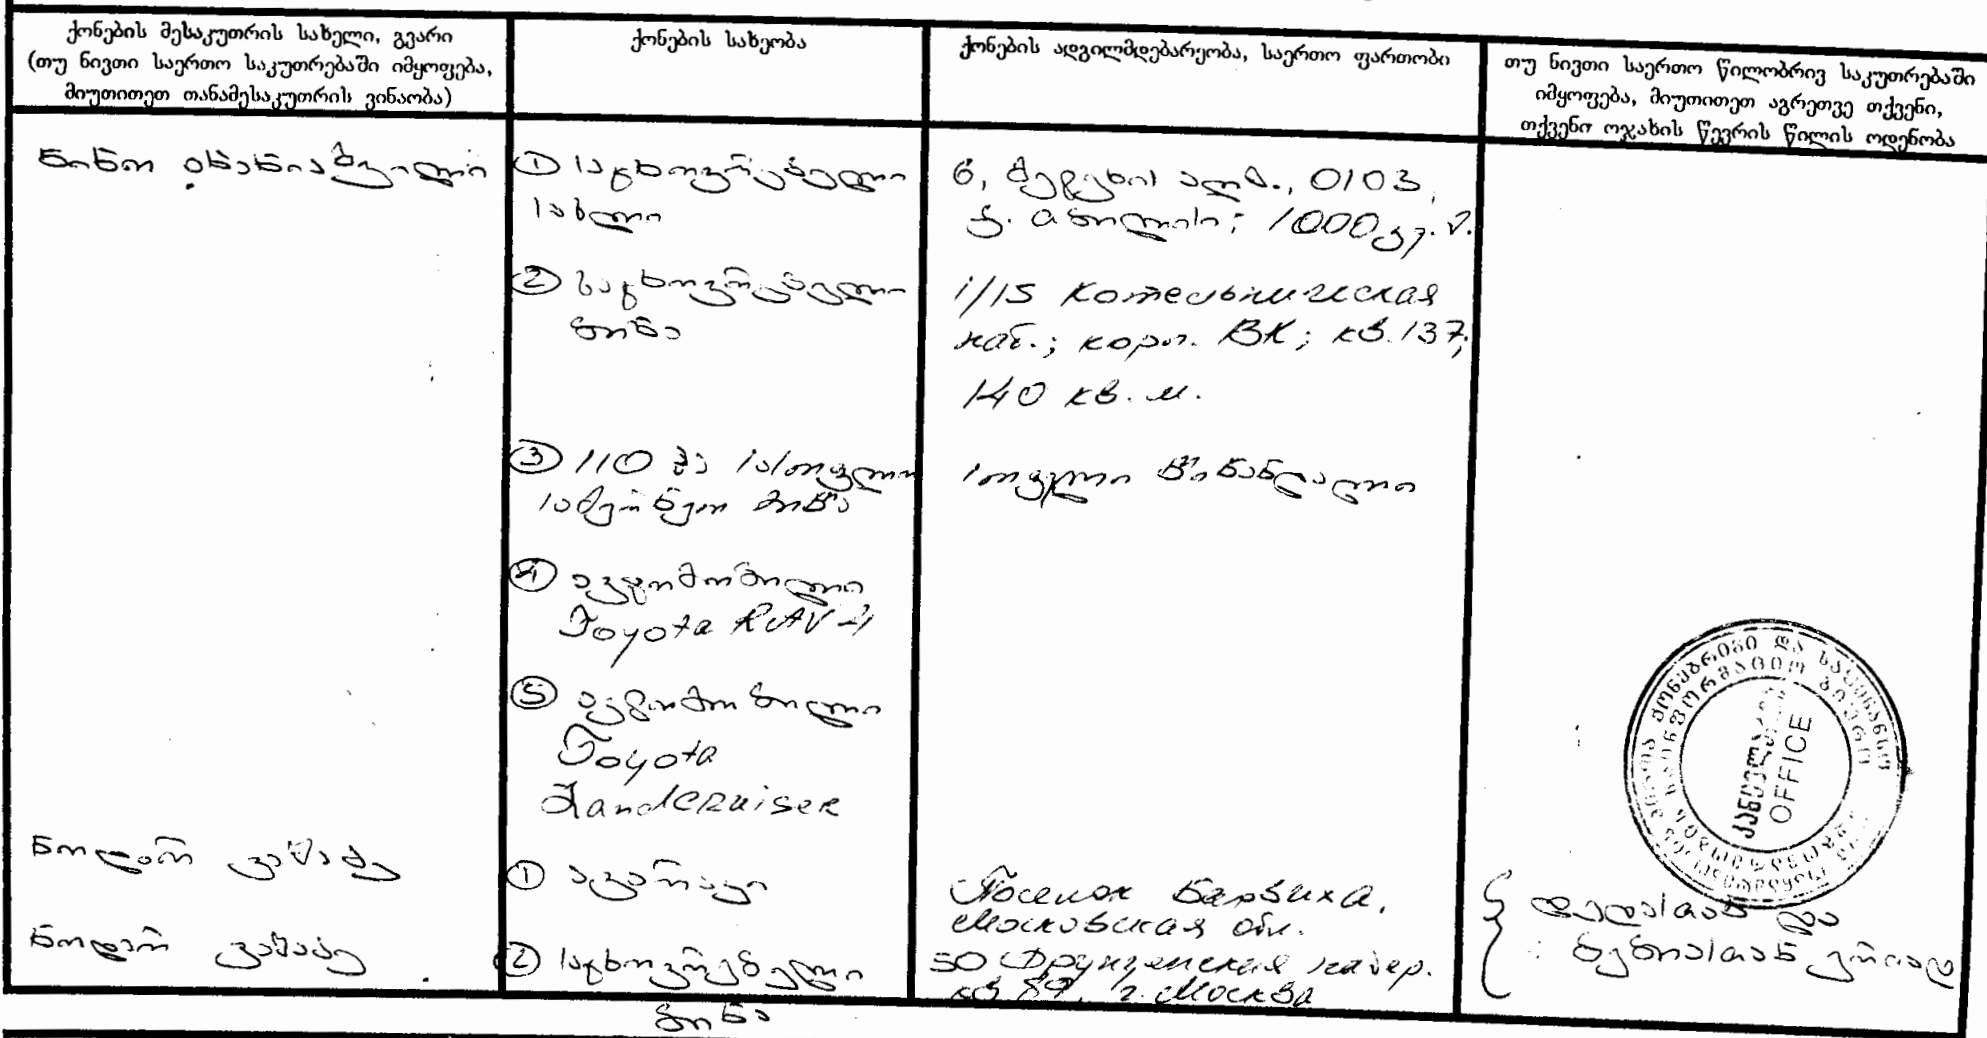 ქონების მესაკუთრის სახელი, გვარი
(თუ ნივთი საერთო საკუთრებაში იმყოფება,
მიუთითეთ თანამესაკუთრის ვინაობა)
ქონების სახეობა
ქონების ადგილმდებარეობა, საერთო ფართობი
თუ ნივთი საერთო წილობრივ საკუთრებაში
იმყოფება, მიუთითეთ აგრეთვე თქვენი,
თქვენი ოჯახის წევრის წილის ოდენობა
ნინო ანანიაშვილი
① საცხოვრებელი
სახლი
6, 0103,
ქ. თბილისი; 1000 კვ. მ.
② საცხოვრებელი
ბინა
1/15 Котельническая
наб.; корп. ВК; кв. 137;
140 кв. м.
③ 110 ჰა სასოფლო
სამეურნეო მიწა
სოფელი წინანდალი
④ ავტომობილი
Toyota RAV-4
⑤ ავტომობილი
Toyota
Landcruiser
ნოდარ ვაშაძე
① აგარაკი
Поселок Барвиха,
Московская обл.
დედასთან და
ნოდარ ვაშაძე
② საცხოვრებელი
ბინა
50 Фрунзенская набер.
кв 87, г. Москва
ძმასთან ერთად
კანცელარია
OFFICE